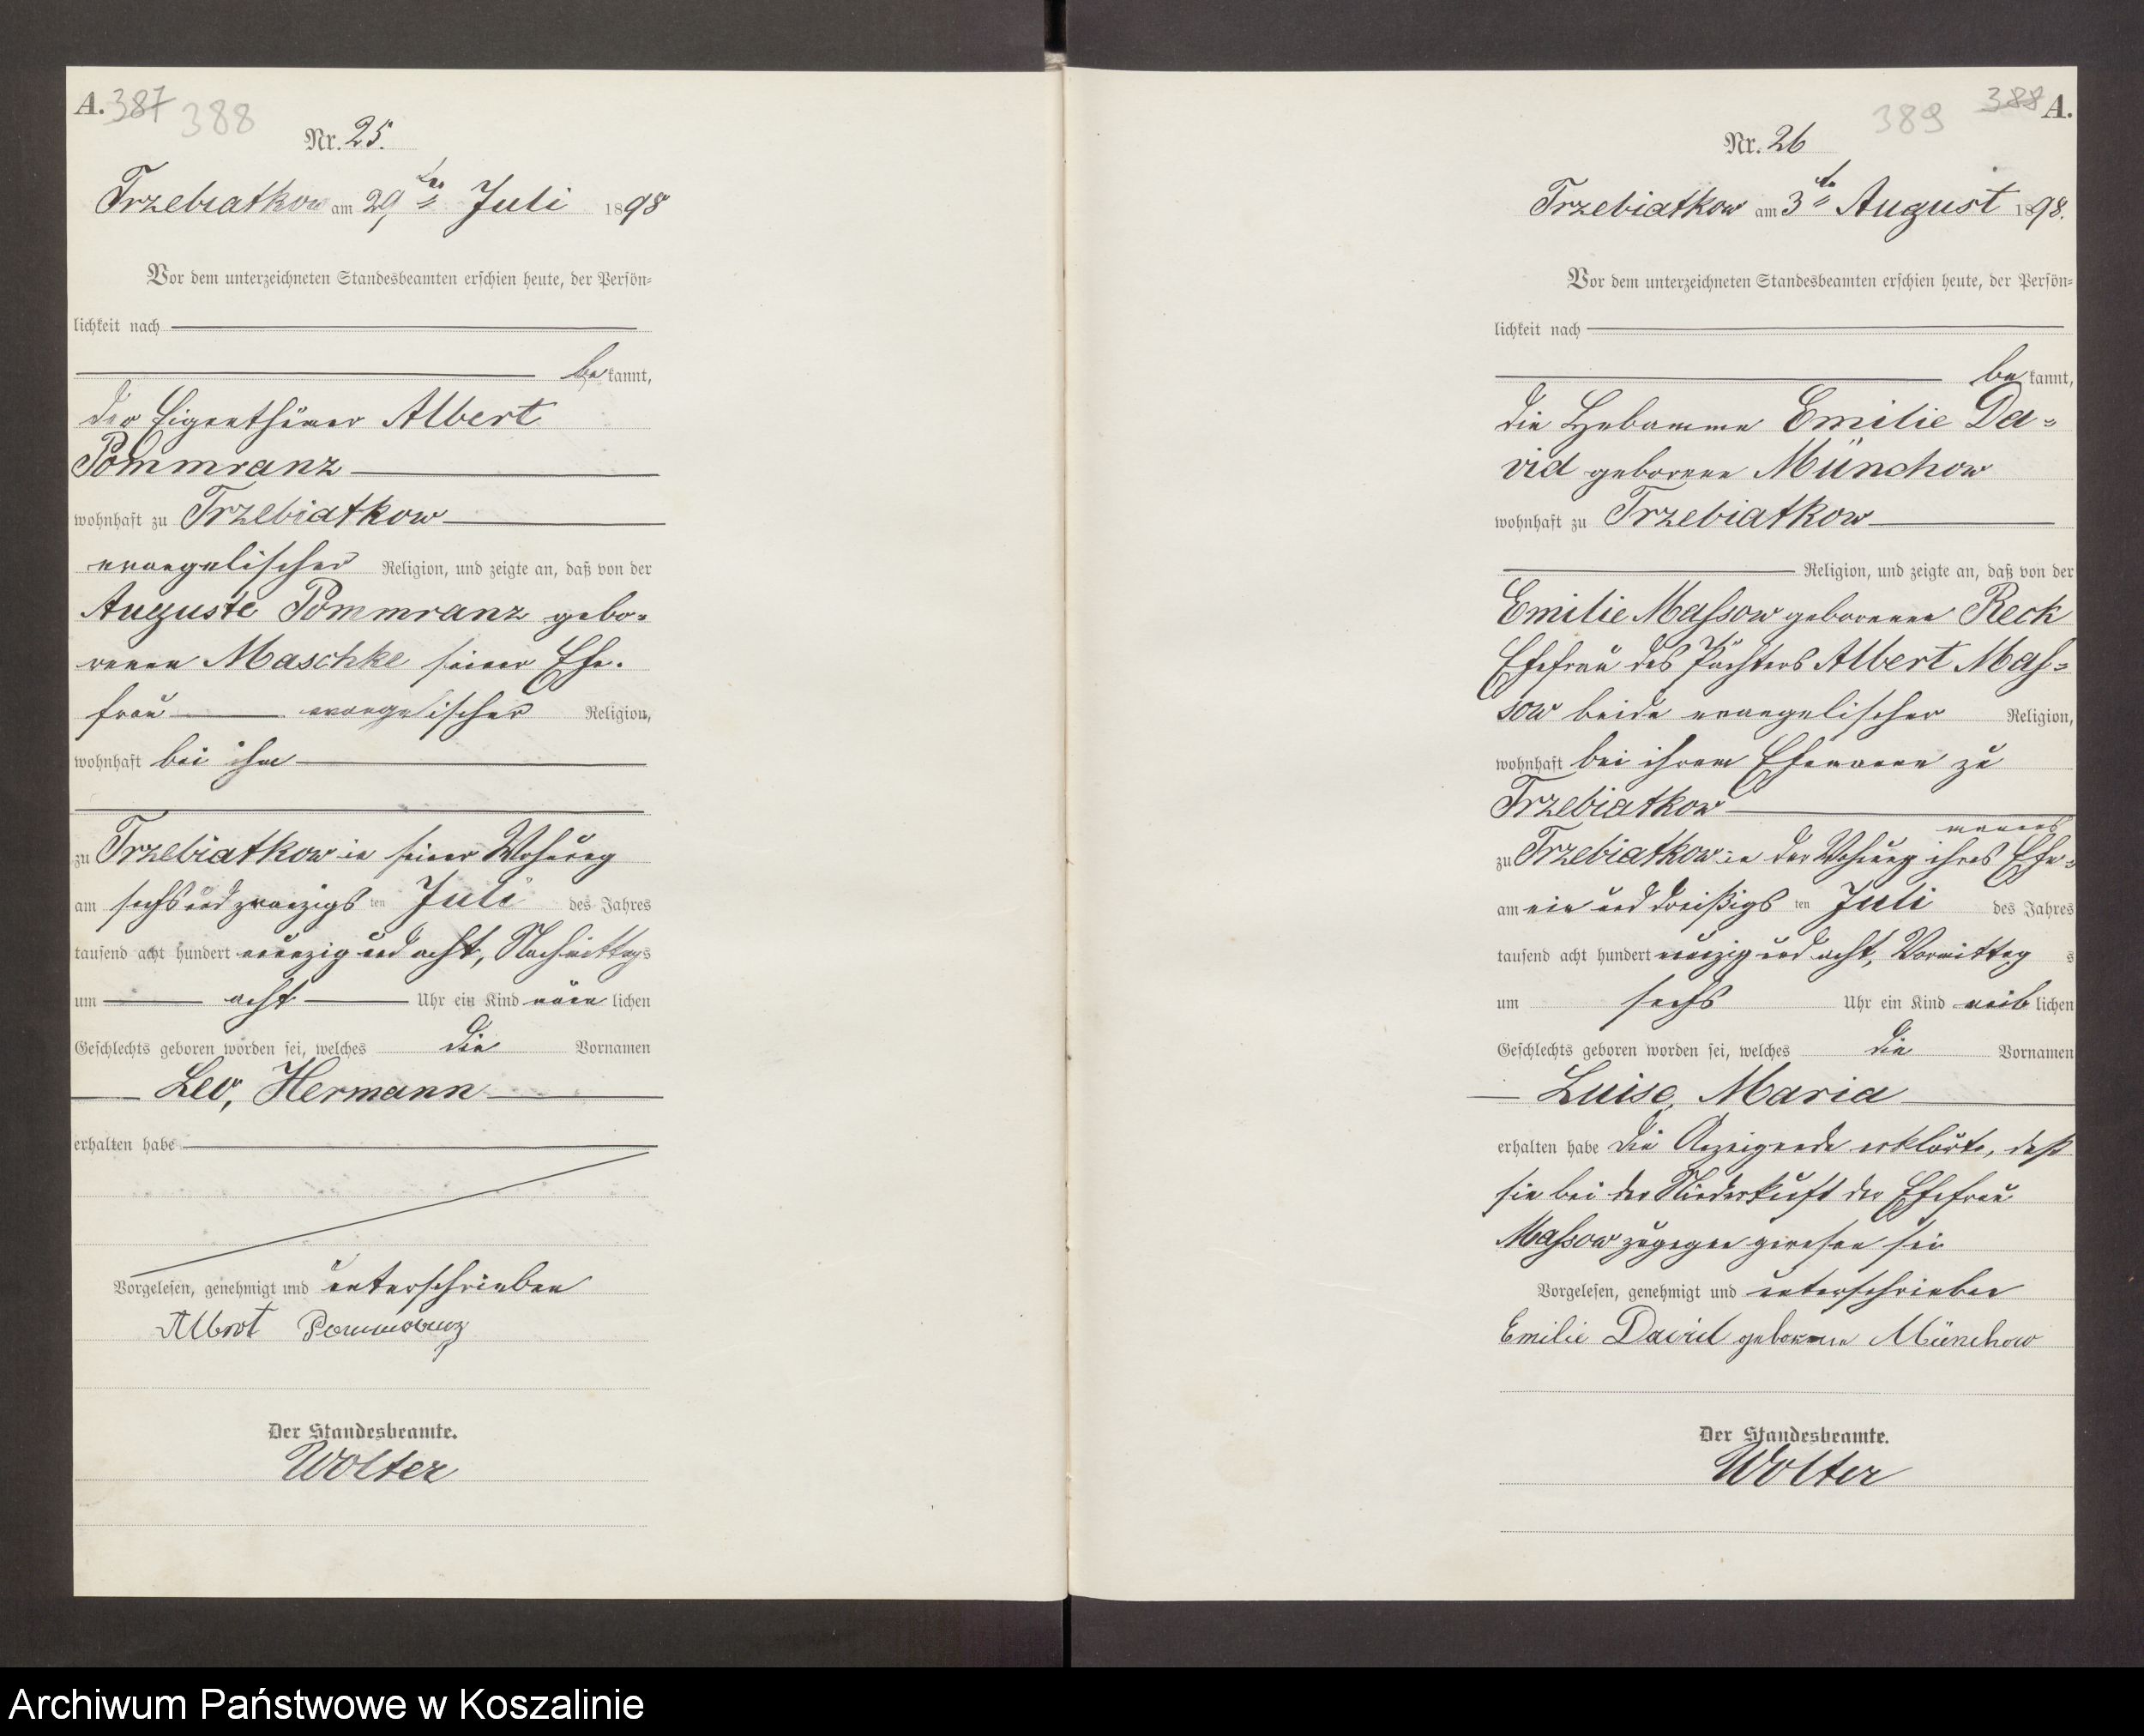 A. 387 388
Nr. 25.
Trzebiatkow am 29ten Juli 1898
Vor dem unterzeichneten Standesbeamten erschien heute, der Persön-
lichkeit nach
bekannt,
der Eigenthümer Albert
Pommranz
wohnhaft zu Trzebiatkow
evangelischer Religion, und zeigte an, daß von der
Auguste Pommranz gebo-
renen Maschke seiner Ehe-
frau evangelischer Religion,
wohnhaft bei ihm
zu Trzebiatkow in seiner Wohnung
am sechsundzwanzigsten Juli des Jahres
tausend acht hundert neunzig und acht, Nachmittags
um acht Uhr ein Kind männlichen
Geschlechts geboren worden sei, welches die Vornamen
Leo, Hermann
erhalten habe
Vorgelesen, genehmigt und unterschrieben
Albert Pommranz
Der Standesbeamte.
Wolter
389 388 A.
Nr. 26
Trzebiatkow am 3ten August 1898.
Vor dem unterzeichneten Standesbeamten erschien heute, der Persön-
lichkeit nach
bekannt,
die Hebamme Emilie Da-
vid geborene Münchow
wohnhaft zu Trzebiatkow
Religion, und zeigte an, daß von der
Emilie Massow geborenen Reck
Ehefrau des Pächters Albert Mas-
sow beide evangelischer Religion,
wohnhaft bei ihrem Ehemann zu
Trzebiatkow
mannes
zu Trzebiatkow in der Wohnung ihres Ehe-
am ein und dreißigsten Juli des Jahres
tausend acht hundert neunzig und acht, Vormittags
um sechs Uhr ein Kind weiblichen
Geschlechts geboren worden sei, welches die Vornamen
Luise, Maria
erhalten habe Die Anzeigende erklärte, daß
sie bei der Niederkunft der Ehefrau
Massow zugegen gewesen sei
Vorgelesen, genehmigt und unterschrieben
Emilie David geborene Münchow
Der Standesbeamte.
Wolter
Archiwum Państwowe w Koszalinie